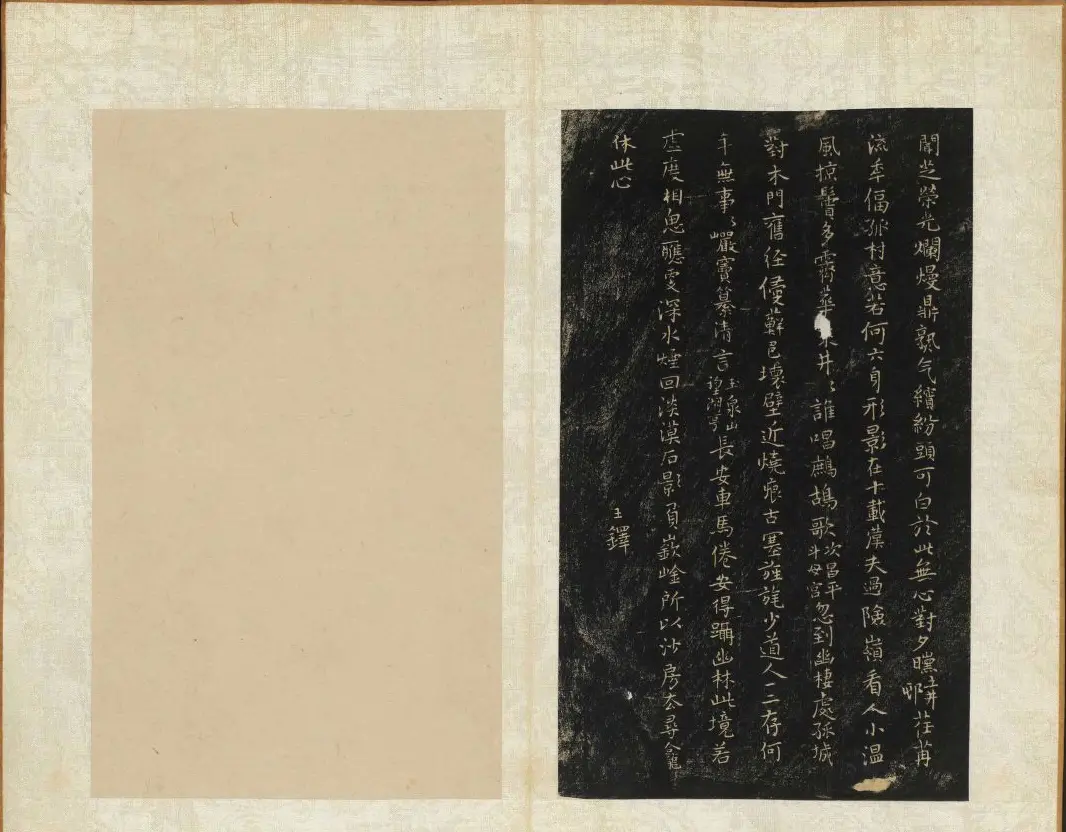 開芝榮光爛熳鼎孰气繽紛頭可白於此無心對夕曛井邪荏苒
流年偪孤村意若何六身形影在十載漢夫過險嶺看人小溫
風掠鬢多霜華井〻誰唱鷓鴣歌次昌平斗母宮忽到幽棲處孤城
對木門舊徑侵蘚邑壞壁近燒痕古塞旌旄少道人一二存何
年無事〻巖竇纂清言玉泉山望湖亭長安車馬倦安得躡幽林此境若
虛度相思應更深水煙回淡漠石影負嶔崟所以沙房去尋龕
休此心
王鐸